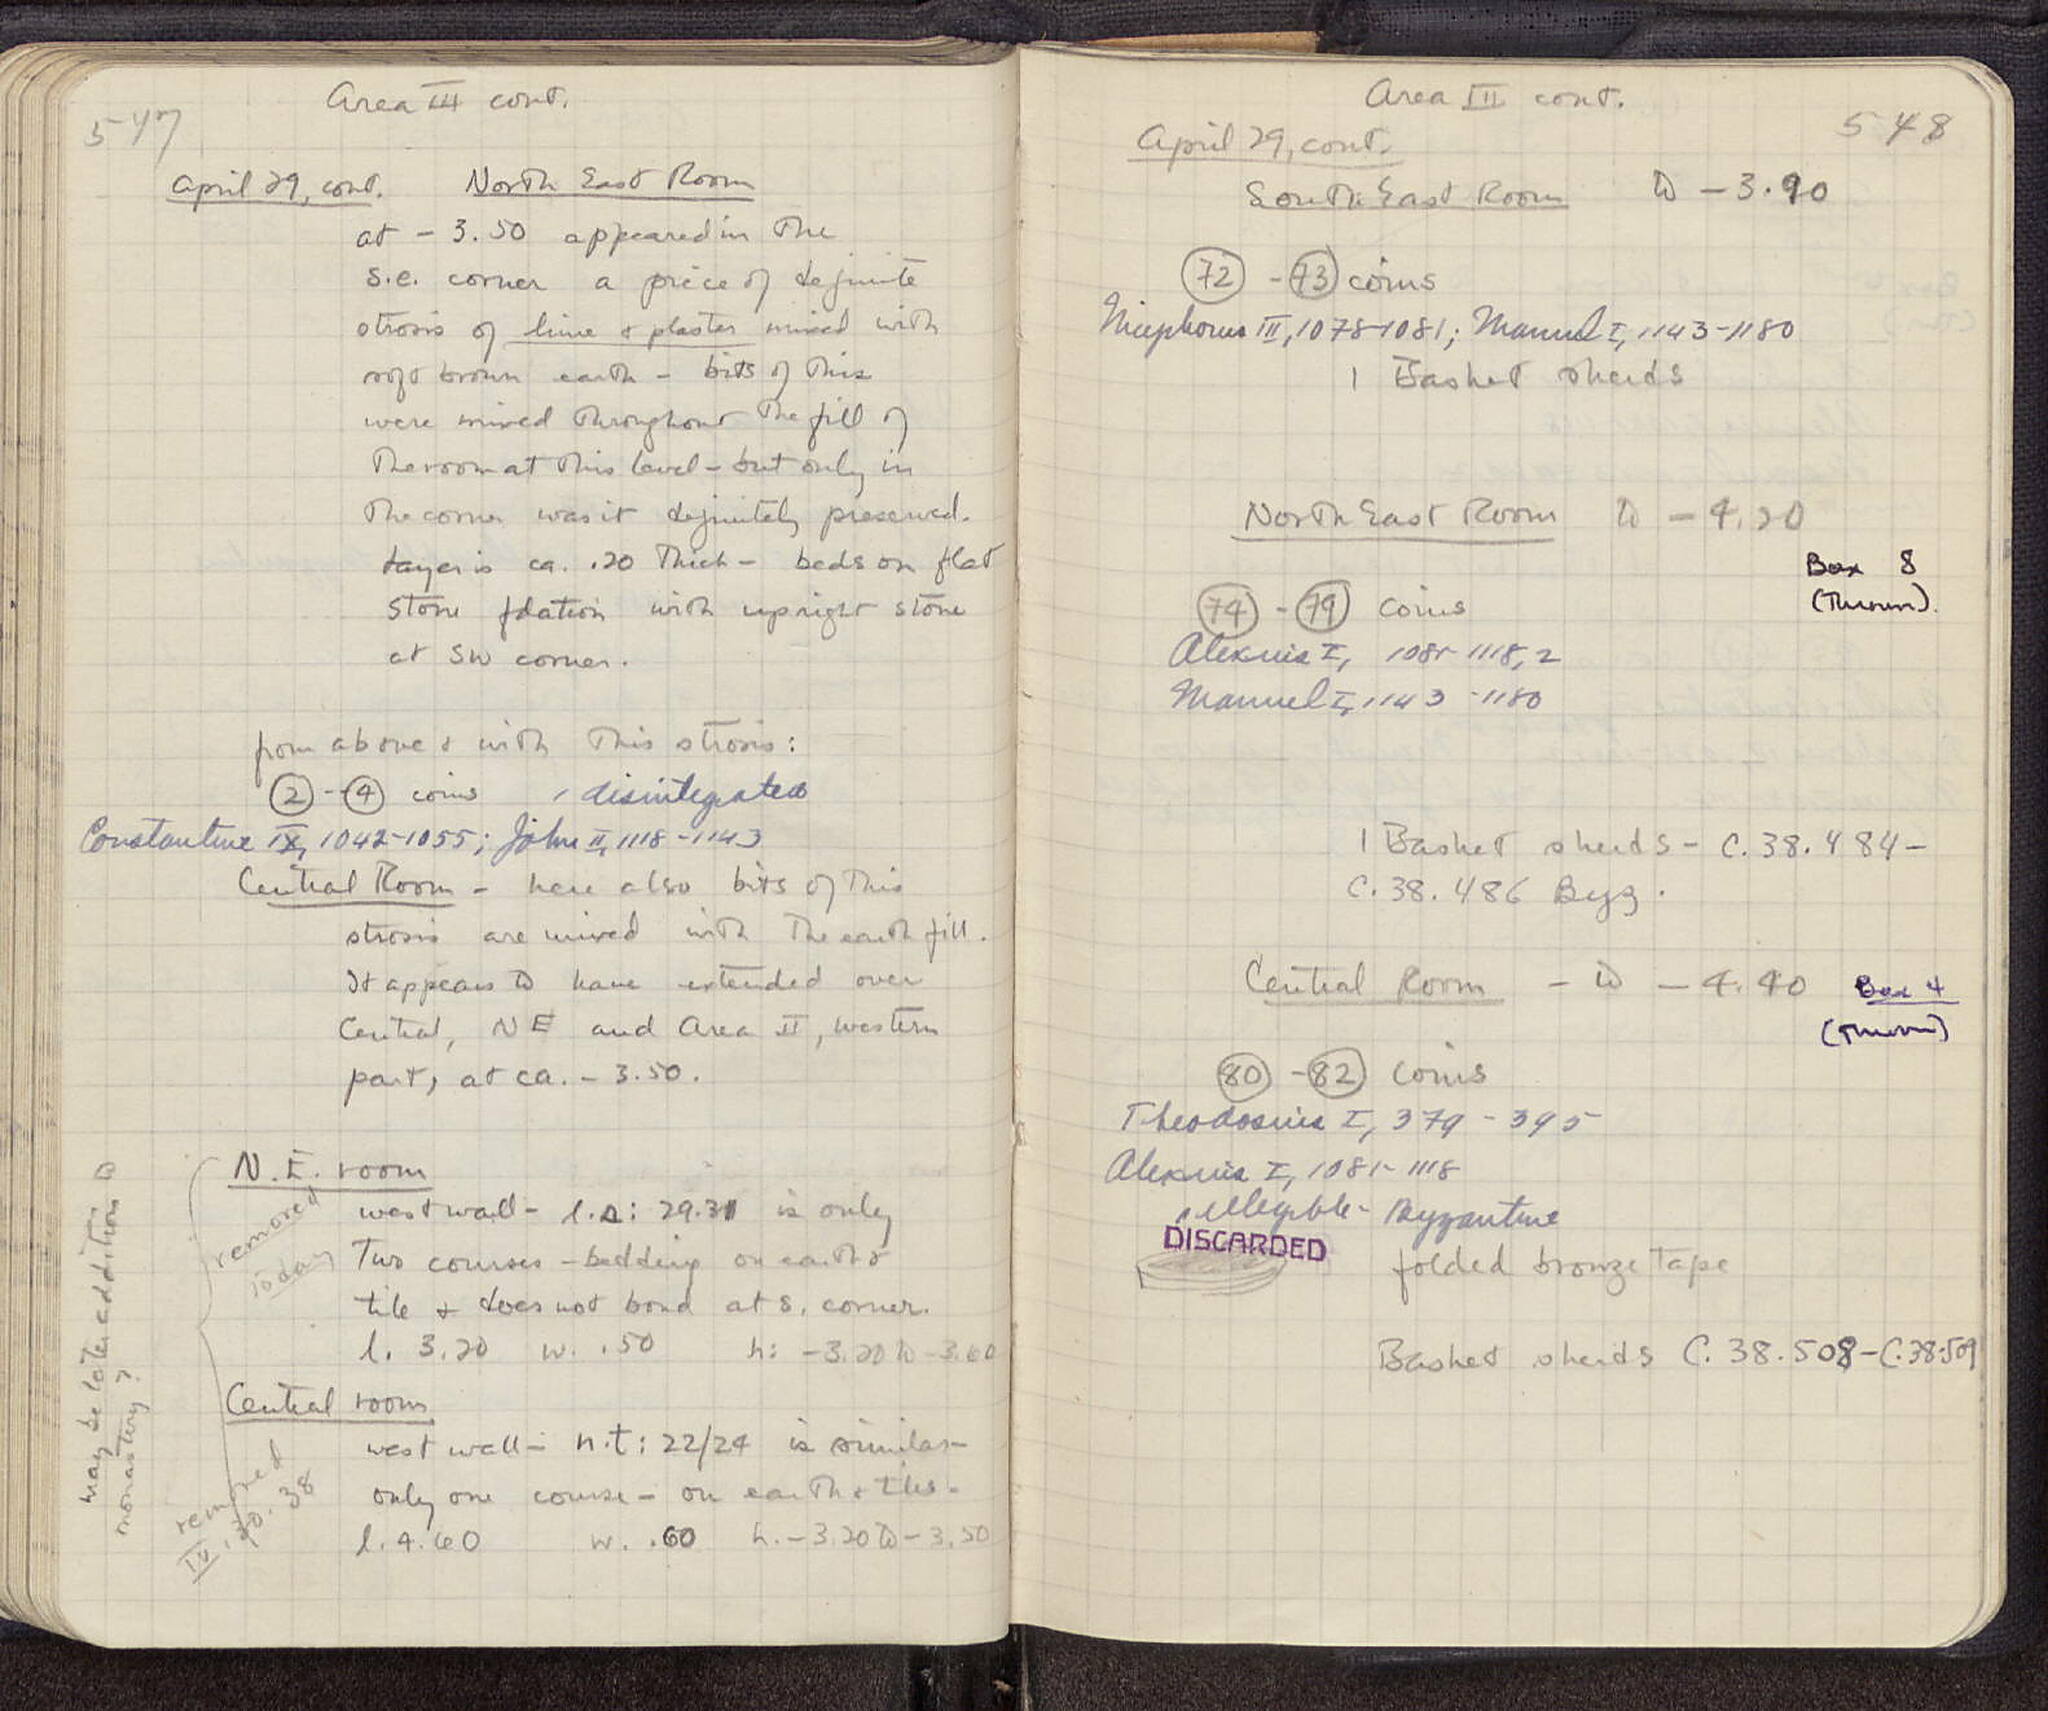 547
Area III cont.
April 29, cont. North East Room
at - 3.50 appeared in the
s.e. corner a piece of definite
strosis of lime & plaster mixed with
soft brown earth - bits of this
were mixed throughout the fill of
the room at this level - but only in
the corner was it definitely preserved.
Layer is ca. .20 thick - beds on flat
stone fdation with upright stone
at SW corner.
from above & with this strosis:
2 - 4 coins 1 disintegrated
Constantine IX, 1042-1055; John II, 1118-1143
Central Room - here also bits of this
strosis are mixed with the earth fill.
It appears to have extended over
Central, NE and Area II, western
part, at ca. - 3.50.
N.E. room
removed today
west wall - l.s: 29.31 is only
two courses - bedding on earth &
tile & does not bond at s. corner.
l. 3.20 w. .50 h: -3.20 to -3.60
Central room
west wall - n.t: 22/24 is similar -
only one course - on earth & tiles.
l. 4.60 w. .60 h. -3.20 to -3.50
removed
IV.30.38
may be later addition to
monastery?
Area III cont.
548
April 29, cont.
South East Room to -3.90
72 - 73 coins
Nicephorus III, 1078-1081; Manuel I, 1143-1180
1 Basket sherds
North East Room to -4.20
Box 8
(Thrown).
74 - 79 coins
Alexius I, 1081-1118, 2
Manuel I, 1143-1180
1 Basket sherds - C.38.484-
C.38.486 Byz.
Central Room - to -4.40
Box 4
(Thrown)
80 - 82 coins
Theodosius I, 379-395
Alexius I, 1081-1118
1 illegible - Byzantine
DISCARDED
folded bronze tape
Basket sherds C.38.508-C.38.509